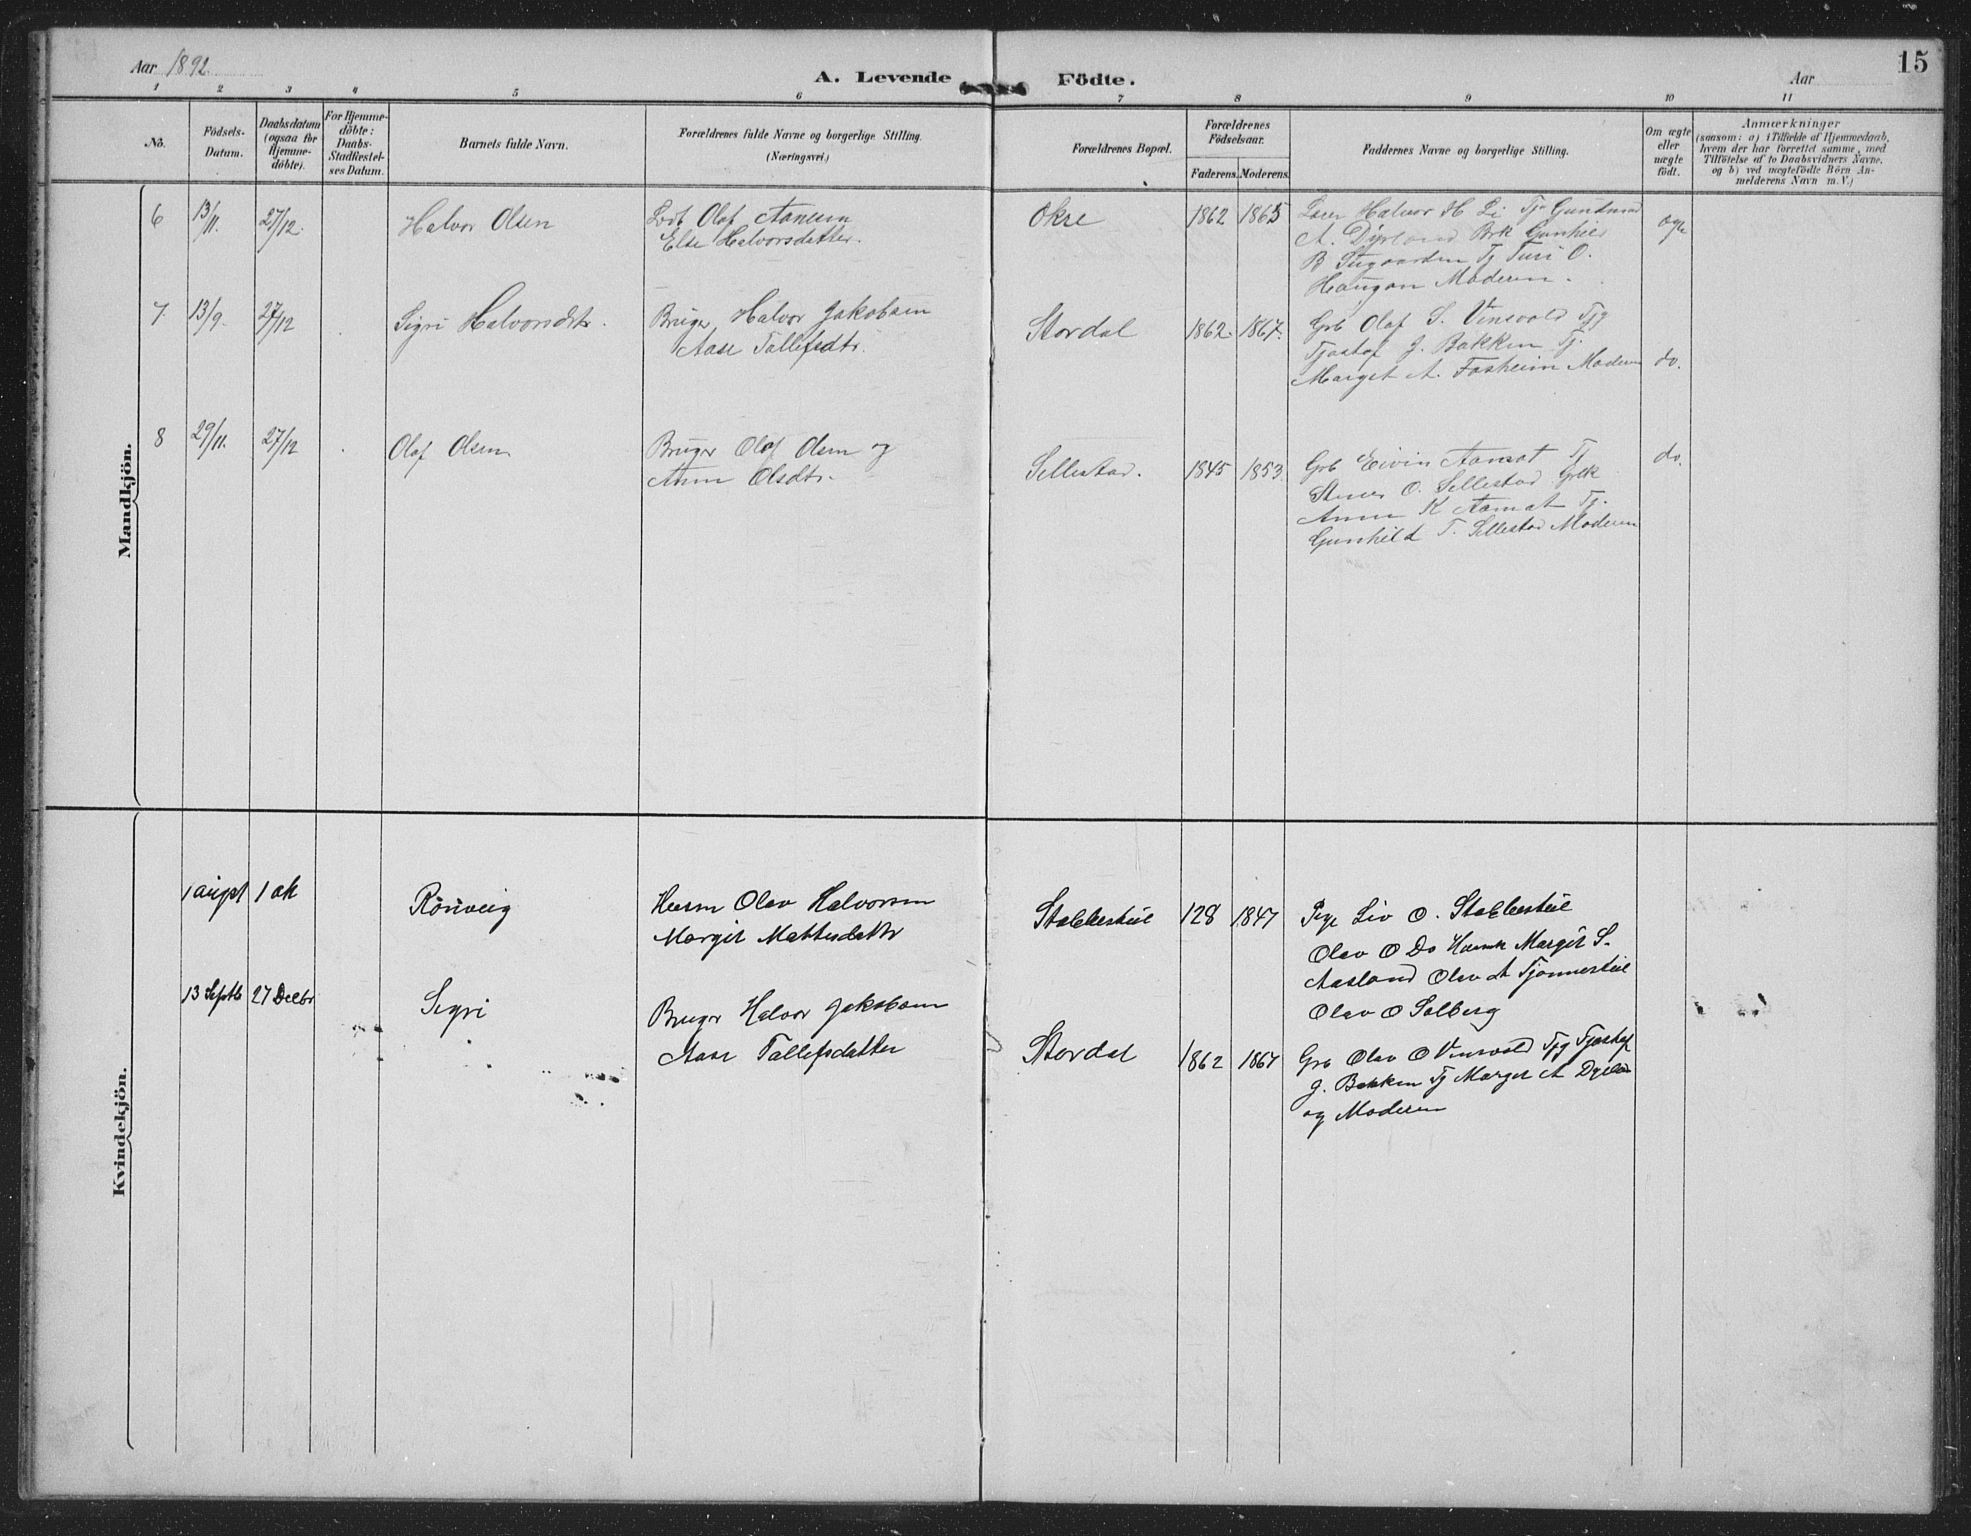 Aar 1892
A. Levende Födte.
Aar
15
1 2 3 4 5 6 7 8 9 10 11
No.
Födsels-
Datum.
Daabsdatum
(ogsaa for
Hjemme-
döbte).
For Hjemme-
döbte:
Daabs-
Stadfæstel-
ses Datum.
Barnets fulde Navn.
Forældrenes fulde Navne og borgerlige Stilling.
(Næringsvei.)
Forældrenes Bopæl.
Forældrenes
Födselsaar.
Faderens. Moderens.
Faddernes Navne og borgerlige Stilling.
Om ægte
eller
uægte
födt.
Anmærkninger
(saasom: a) i Tilfælde af Hjemmedaab,
hvem der har forrettet samme, med
Tilföielse af to Daabsvidners Navne,
og b) ved uægtefödte Börn An-
melderens Navn m. V.)
Mandkjön.
6 13/11. 27/12. Halvor Olsen
Olaf Aansen
Else Halvorsdatter.
Okre 1862 1865
Halvor H Li Tj. Gundmund
A. Dyrland Brk Gunhild
B Sugaarden Tj Turi O.
Haugan Moderen.
7 13/9. 27/12 Sigri Halvorsdtr.
Bruger Halvor Jakobsen
Aase Tallefsdtr.
Stordal 1862. 1867.
Grb Olaf S. Vinsvold Tjg
Tjostof J. Bakken Tj.
Marget A. Fosheim Moderen
do.
8 29/11. 27/12 Olaf Olsen
Bruger Olaf Olsen og
Anne Olsdtr.
Sellestad. 1845 1853
Grb Eivin Aamot Tj
Stener O. Sellestad Grbk
Anne K Aamot Tj.
Gunhild T. Sellestad Moderen
do.
Kvindekjön.
1 augst 1 ok Rönveig
Husm Olav Halvorsen
Margit Mattisdatter
Stabbestuil 128 1847
Pige Liv O. Stabbestuil
Olav O Do Husmk Margit S.
Aasland Olav A Tjönnestuil
Olav O Solberg
13 Septb 27 Decbr Sigri
Bruger Halvor Jakobsen
Aase Tallefsdatter
Stordal 1862 1867
Grb Olav O Vinsvold Tjg Tjostof
J. Bakken Tj Marget A
og Moderen